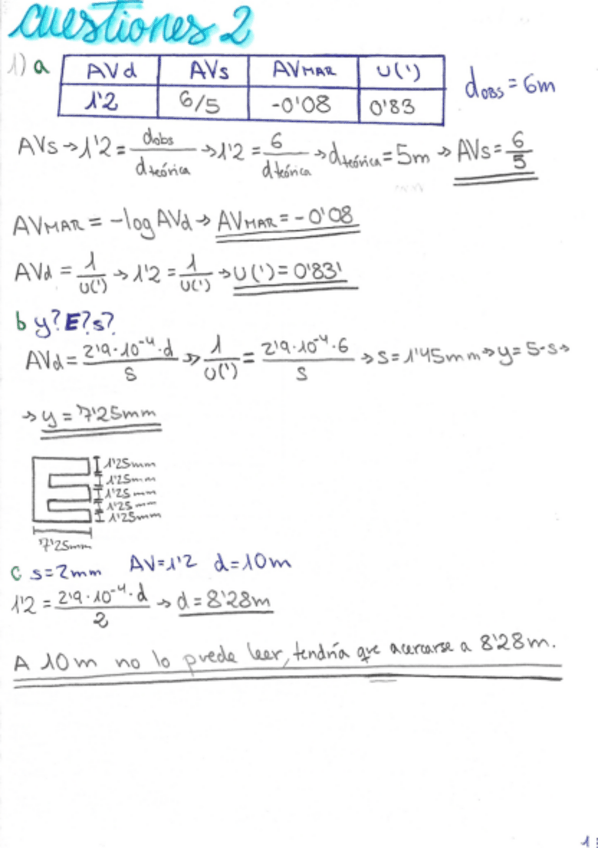 cuestiones 2
1) a
AVd AVs AVMAR U(')
1'2 6/5 -0'08 0'83
dOBS = 6m
AVs → 1'2 = dobs/dteórica → 1'2 = 6/dteórica → dteórica = 5m → AVs = 6/5
AVMAR = -log AVd → AVMAR = -0'08
AVd = 1/U(') → 1'2 = 1/U(') → U(') = 0'83'
b y? E? s?
AVd = 2'9·10⁻⁴·d/s → 1/U(') = 2'9·10⁻⁴·6/s → s = 1'45mm → y = 5·s →
→ y = 7'25mm
1'25mm
1'25mm
1'25mm
1'25mm
1'25mm
7'25mm
c s=2mm AV=1'2 d=10m
1'2 = 2'9·10⁻⁴·d/2 → d = 8'28m
A 10m no lo puede leer, tendría que acercarse a 8'28m.
1